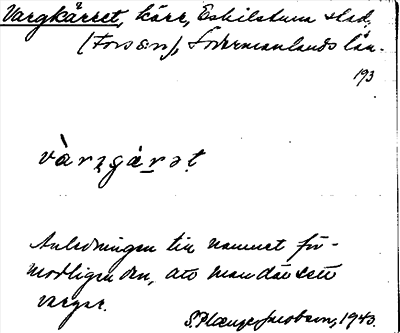 Vargkärret, kärr, Eskilstuna stad,
(Fors sn), Södermanlands län.
193
vàrgɡá̱rət
Anledningen till namnet för-
modligen den, att man där sett
vargar.
S. Plænge Jacobson, 1940.